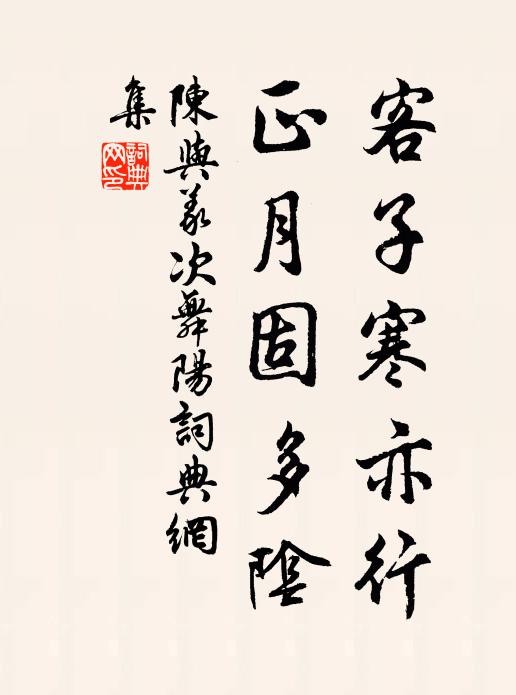 客子寒亦行
正月固多陰
陳與義次舞陽詞典網
集
詞典網印